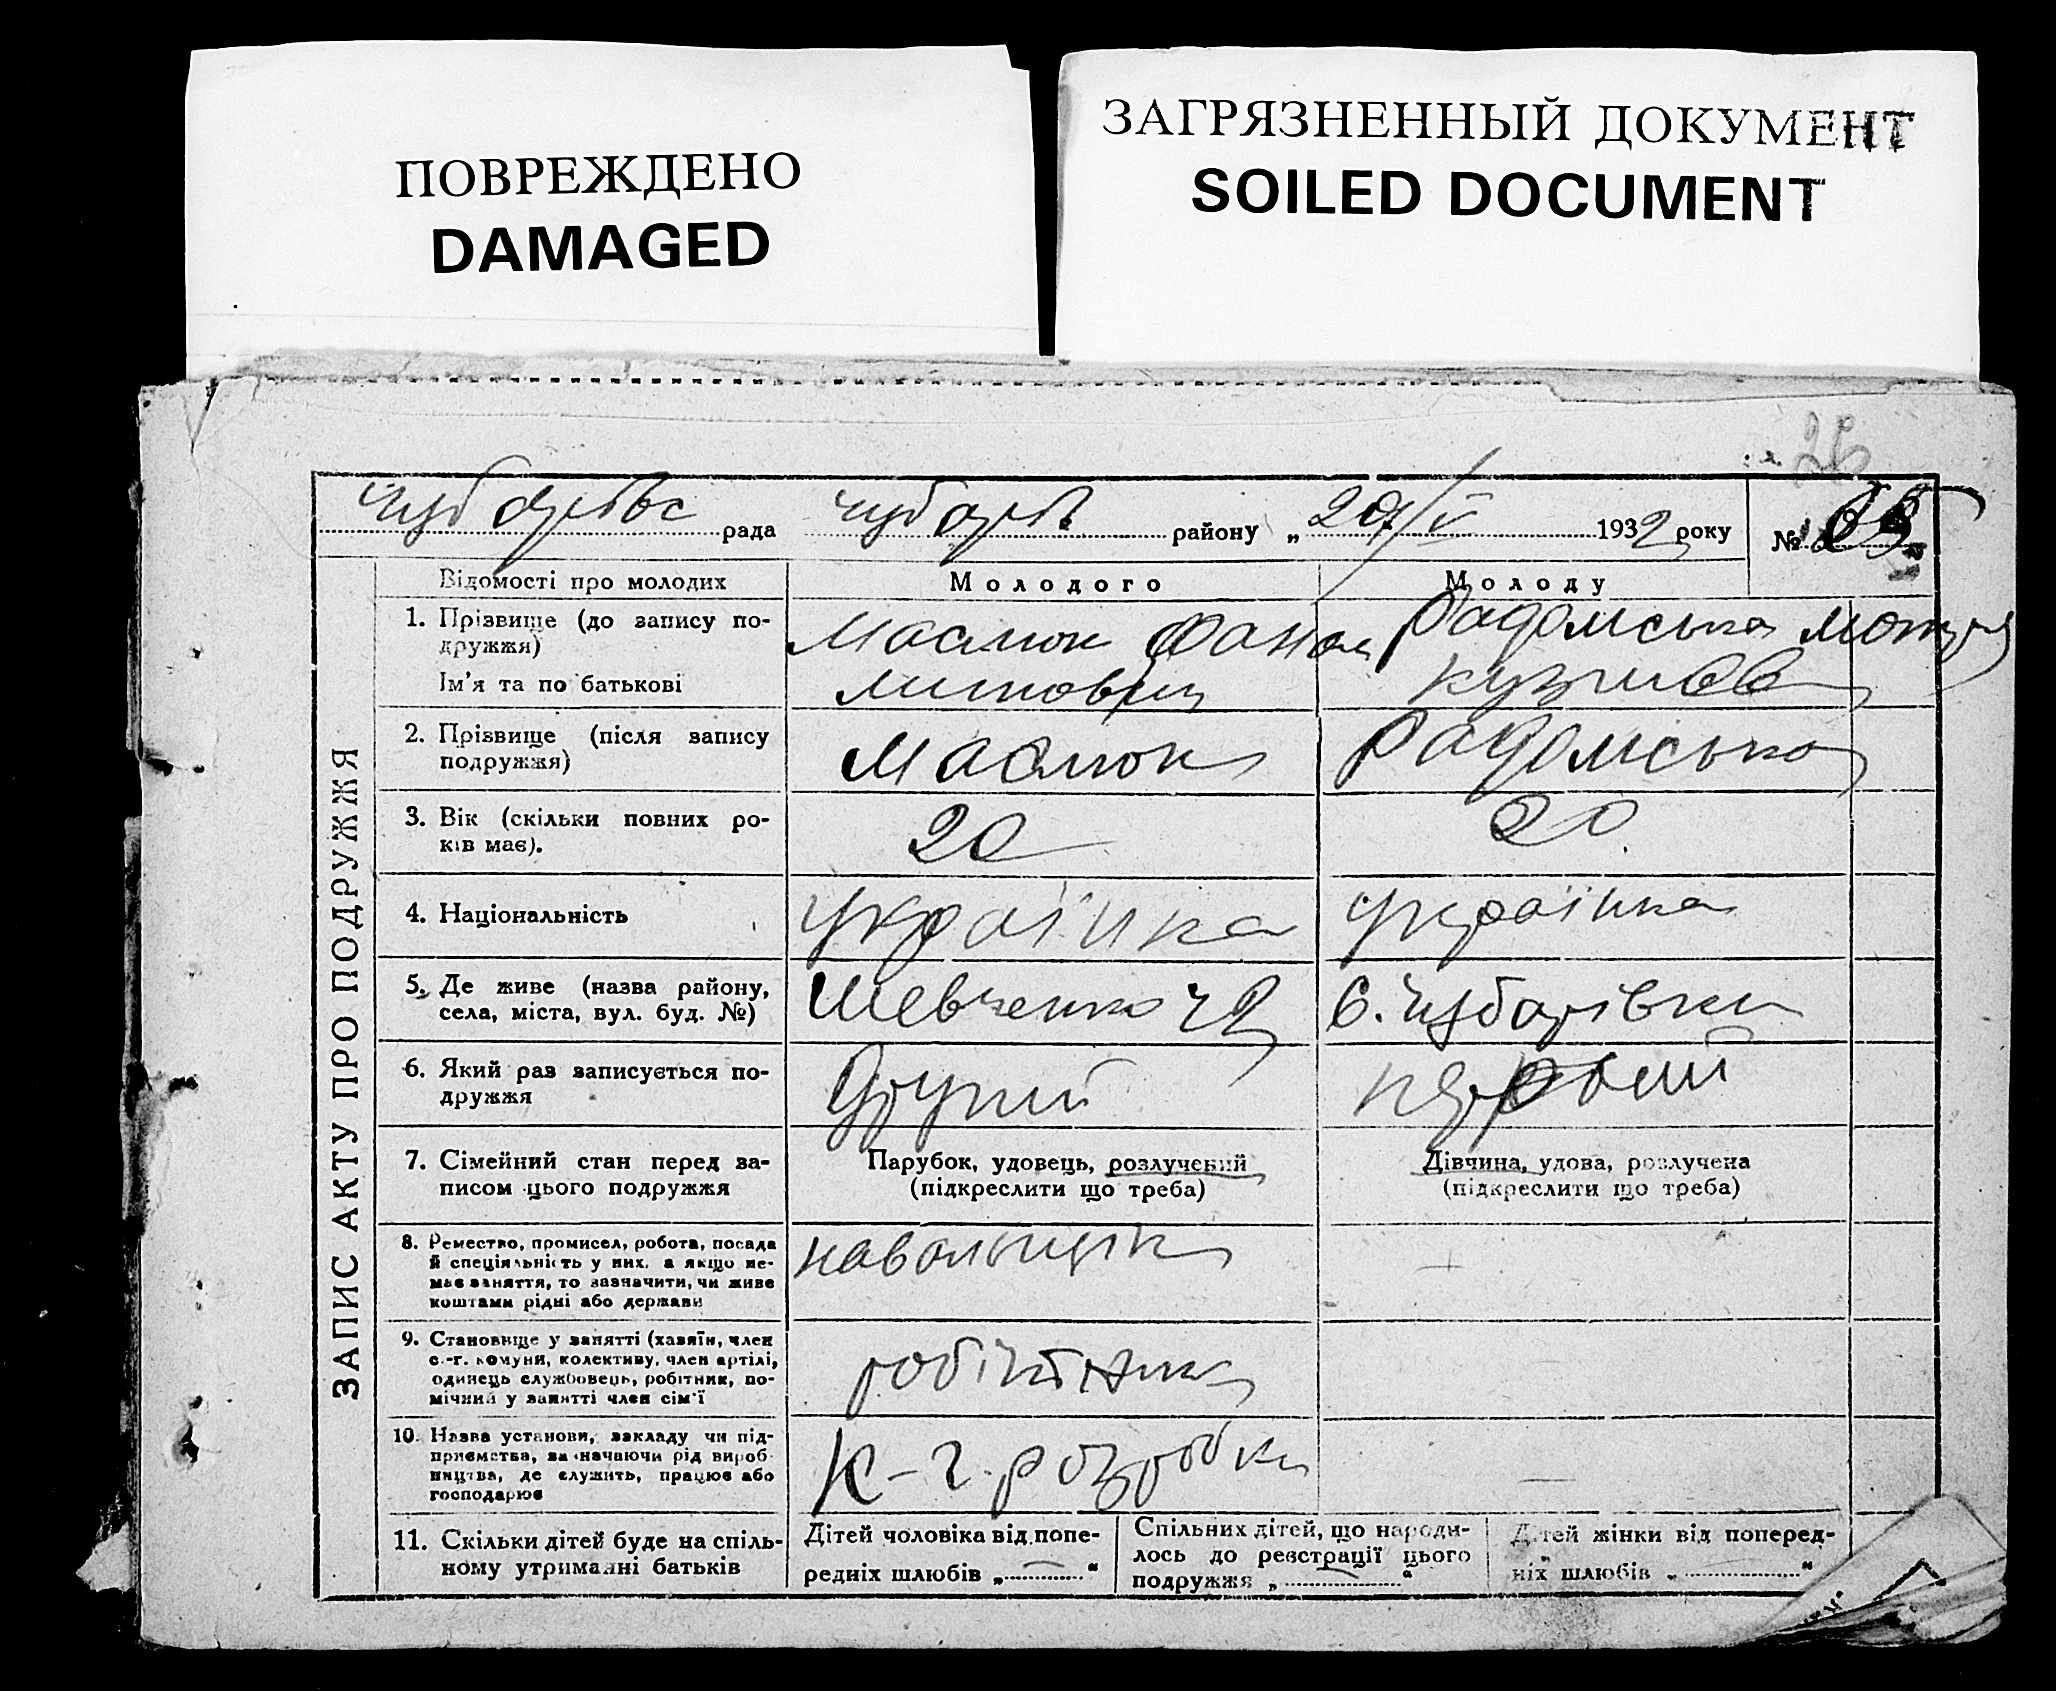 ПОВРЕЖДЕНО
DAMAGED
ЗАГРЯЗНЕННЫЙ ДОКУМЕНТ
SOILED DOCUMENT
26
рада района „ 20/V 1932 року №
ЗАПИС АКТУ ПРО ПОДРУЖЖЯ
Відомості про молодих
Молодого
Молоду
1. Прізвище (до запису по-
дружжя)
Ім'я та по батькові
Маслюк
Радомська
2. Прізвище (після запису
подружжя)
Маслюк
Радомська
3. Вік (скільки повних ро-
ків має).
20
20.
4. Національність
українка
українка
5. Де живе (назва району,
села, міста, вул. буд. №)
Шевченко 42
с. Чубарівки
6. Який раз записується по-
дружжя
Другий
первий
7. Сімейний стан перед за-
писом цього подружжя
Парубок, удовець, розлучений
(підкреслити що треба)
Дівчина, удова, розлучена
(підкреслити що треба)
8. Ремество, промисел, робота, посада
й спеціяльність у них, а якщо не-
має заняття, то зазначити, чи живе
коштами рідні або держави
навольщик
—
9. Становище у занятті (хазяїн, член
с.-г. комуни, колективу, член артілі,
одинець службовець, робітник, по-
мічний у занятті член сім'ї
робітник
10. Назва установи, закладу чи під-
приємства, зазначаючи рід вироб-
ництва, де служить, працює або
господарює
К-г. розробки
—
11. Скільки дітей буде на спіль-
ному утриманні батьків
Дітей чоловіка від попе-
редніх шлюбів „ — “
Спільних дітей, що народи-
лось до реєстрації цього
подружжя „ — “
Дітей жінки від поперед-
ніх шлюбів „ “